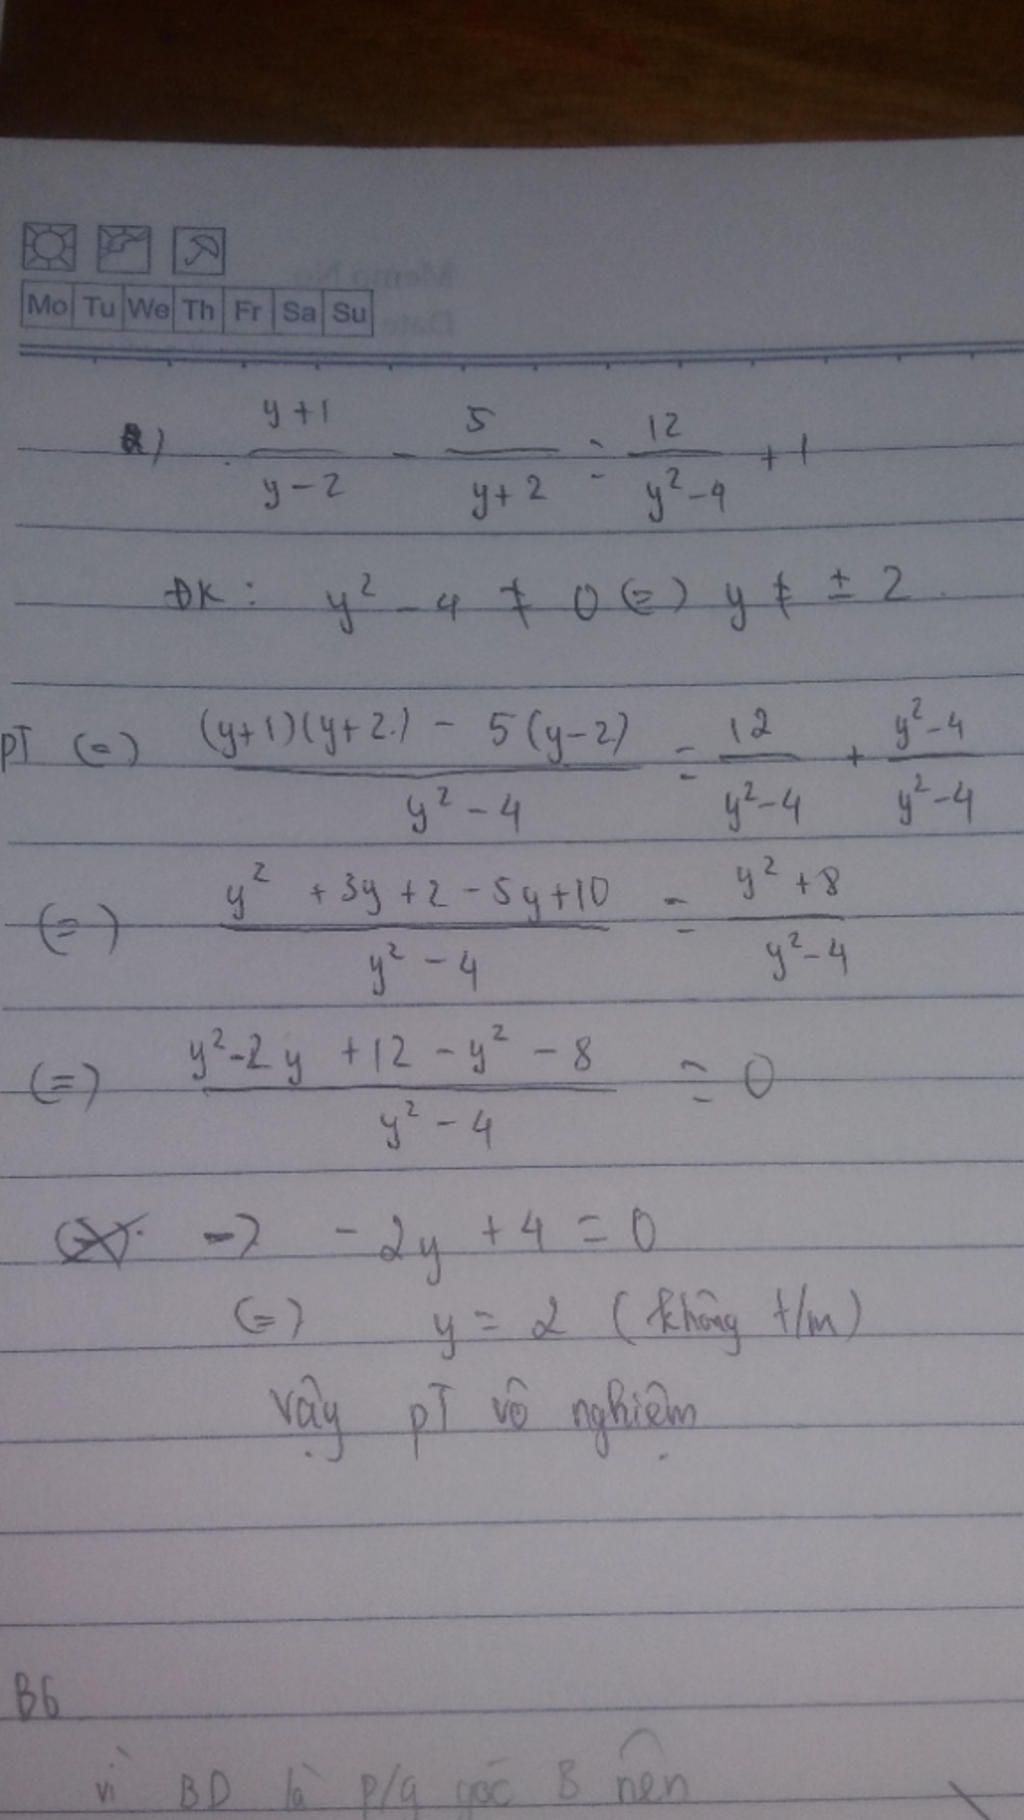 Memo No.
Date
Mo Tu We Th Fr Sa Su
a) (y+1)/(y-2) - 5/(y+2) = 12/(y²-4) + 1
ĐK: y² - 4 ≠ 0 (=) y ≠ ± 2.
PT (=) ((y+1)(y+2) - 5(y-2))/(y²-4) = 12/(y²-4) + (y²-4)/(y²-4)
(=) (y² +3y+2-5y+10)/(y²-4) = (y²+8)/(y²-4)
(=) (y²-2y +12 -y² -8)/(y²-4) = 0
-> -2y +4 = 0
(=) y = 2 (không t/m)
Vậy pT vô nghiệm
B6
vì BD là p/g góc B nên